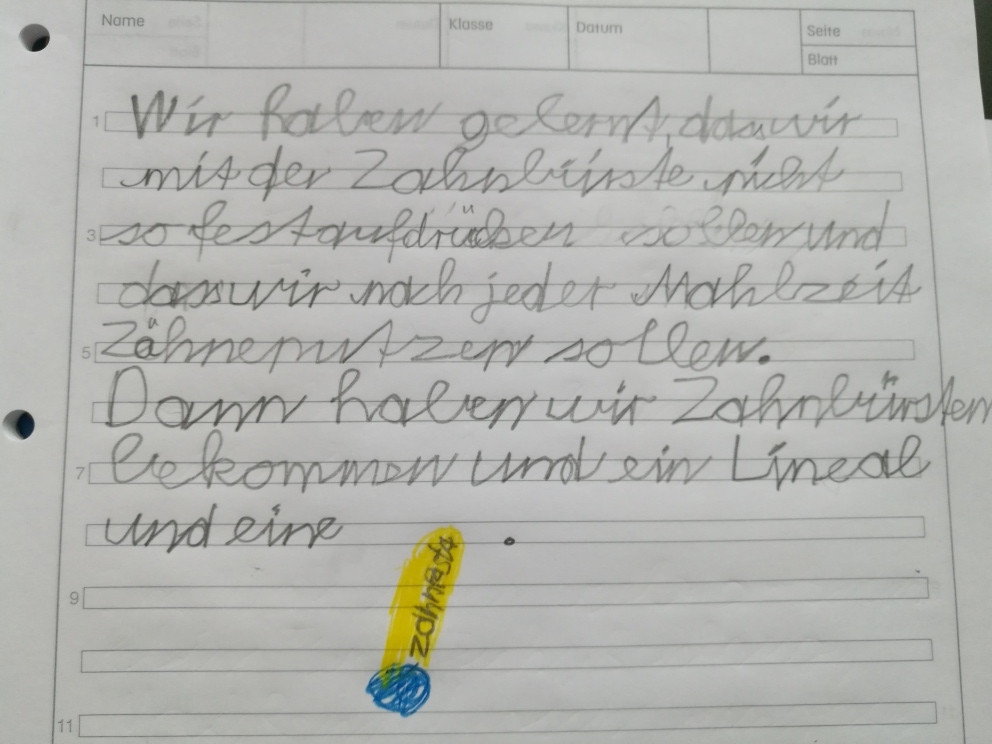 Name Klasse Datum Seite
Blatt
1 Wir haben gelernt, dass wir
mit der Zahnbürste nicht
3 so fest aufdrücken sollen und
dass wir nach jeder Mahlzeit
5 Zähneputzen sollen.
Dann haben wir Zahnbürsten
7 bekommen und ein Lineal
und eine .
Zahnpasta
9
11